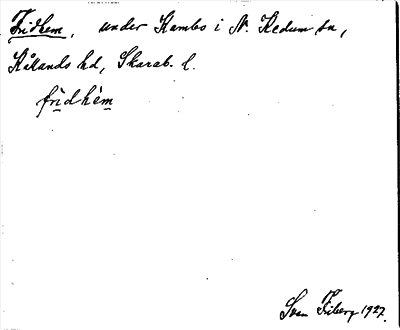 Fridhem, under Kambo i N. Kedum sn,
Kållands hd, Skarab. l.
fri̱dhèm
Sven Friberg 1927.